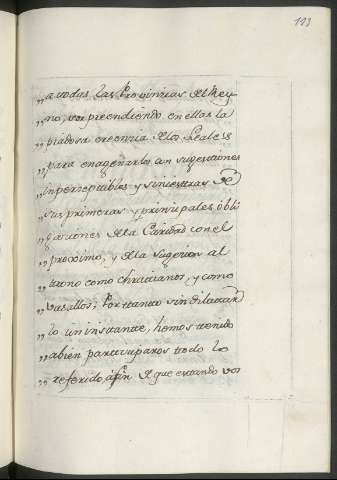 193
„ a todas las Provincias del Rey
„ no, sorpreendiendo en ellas la
„ piadosa creencia de los Leales
„ para enagenarlos con sugestiones
„ inperceptibles y siniestras de
„ sus primeras y prinsipales obli
„ gaciones de la Caridad con el
„ proximo, y de la Sugecion al
„ trono como christianos, y como
„ vasallos; Por tanto sin dilatar
„ lo un instante, hemos tenido
„ abien participaros todo lo
„ referido á fin de que estando vos